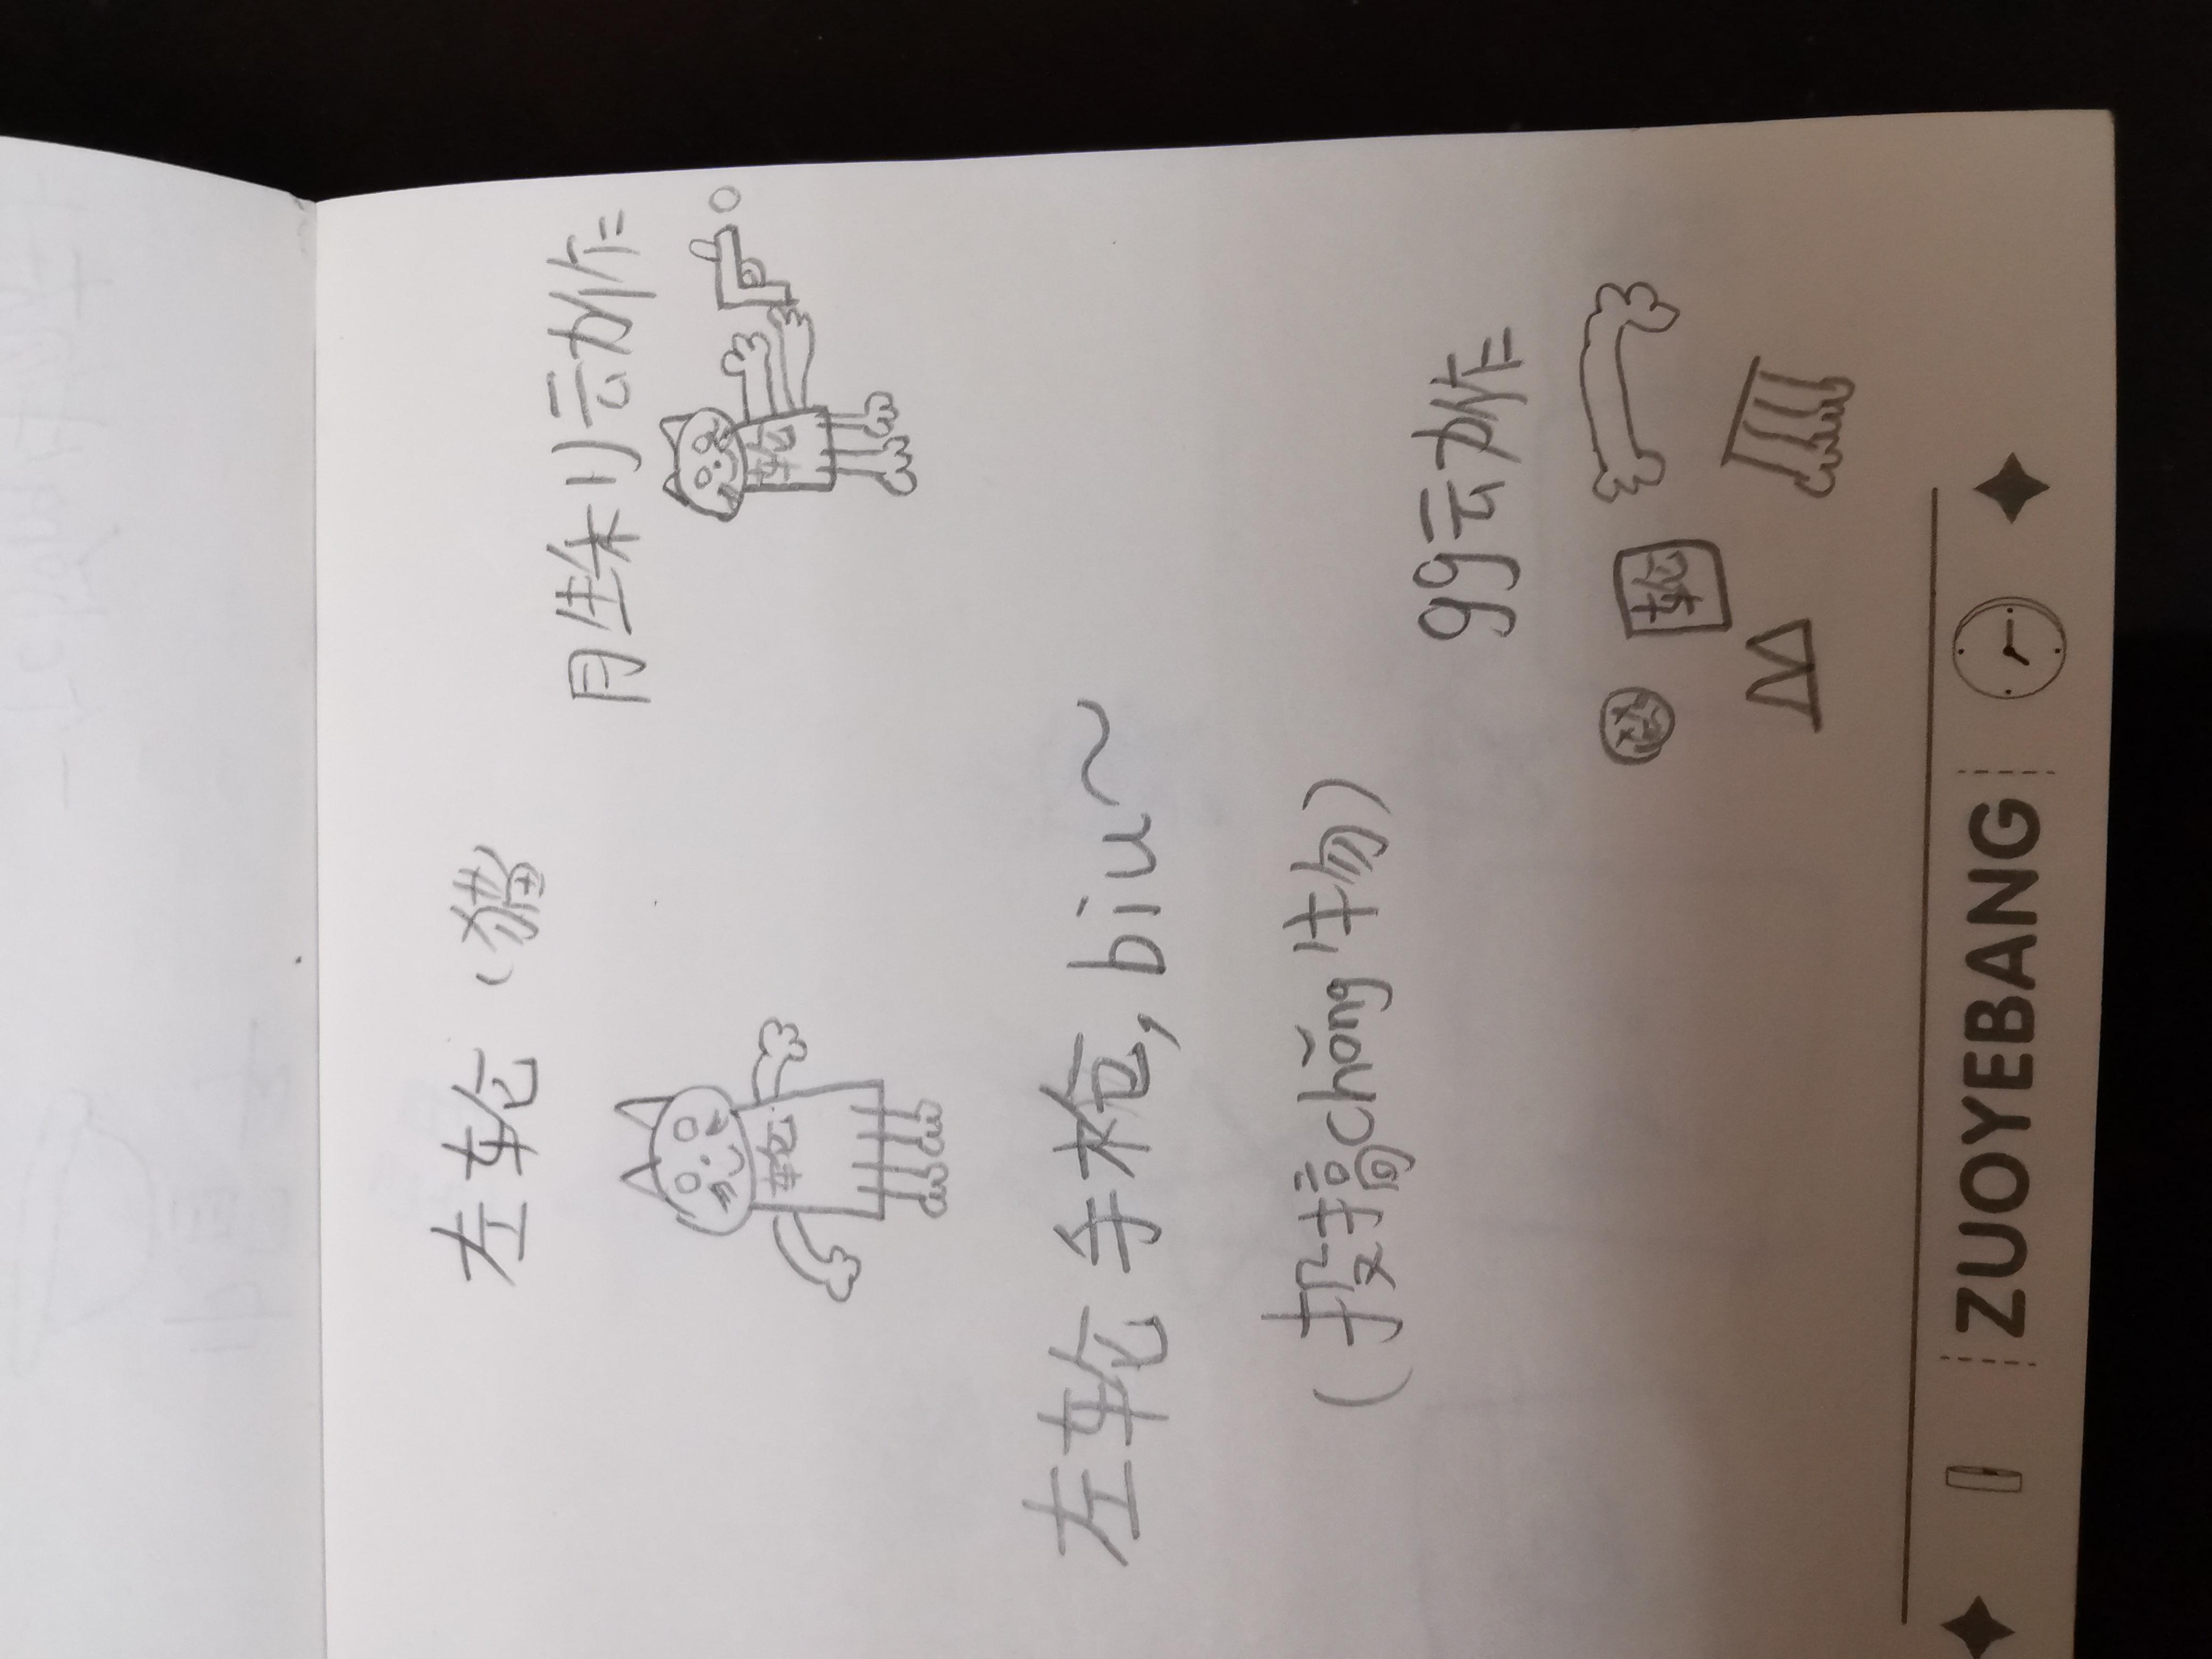 左轮(猫
轮
胜利动作
轮
左轮手枪,biu~
(投搞chǒng物)
gg动作
轮
ZUOYEBANG